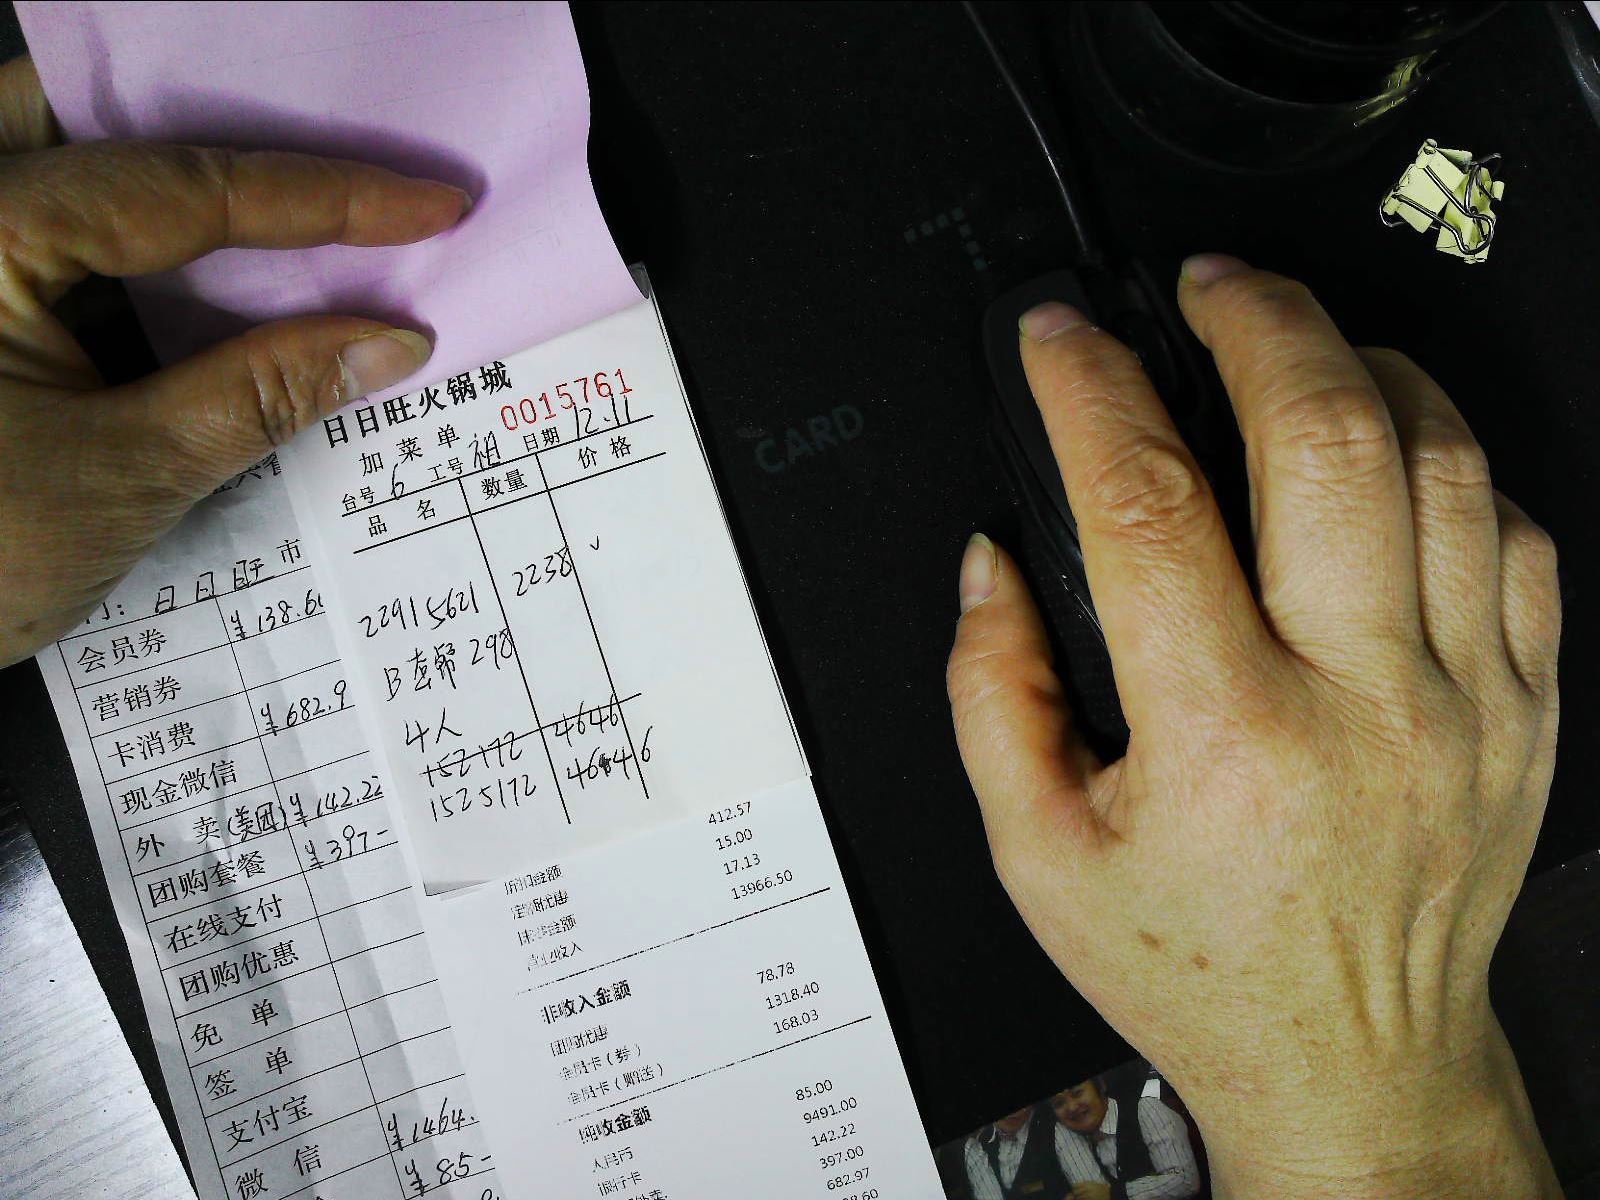 日日旺火锅城
0015761
加菜单
台号 6 工号 祖 日期 12.11
品名 数量 价格
22915621 2238 ✓
B套餐 298
4人
152172 4646
1525172 46846
日日旺市
会员券 ¥138.6
营销券
卡消费 ¥682.9
现金微信
外卖(美团) ¥142.22
团购套餐 ¥397-
在线支付
团购优惠
免单
签单
支付宝
微信 ¥1464.
¥85-
412.57
15.00
17.13
13966.50
营业收入
非收入金额 78.78
团购优惠 1318.40
会员卡(券) 168.03
会员卡(赠送)
纯收金额 85.00
人民币 9491.00
银行卡 142.22
397.00
682.97
CARD